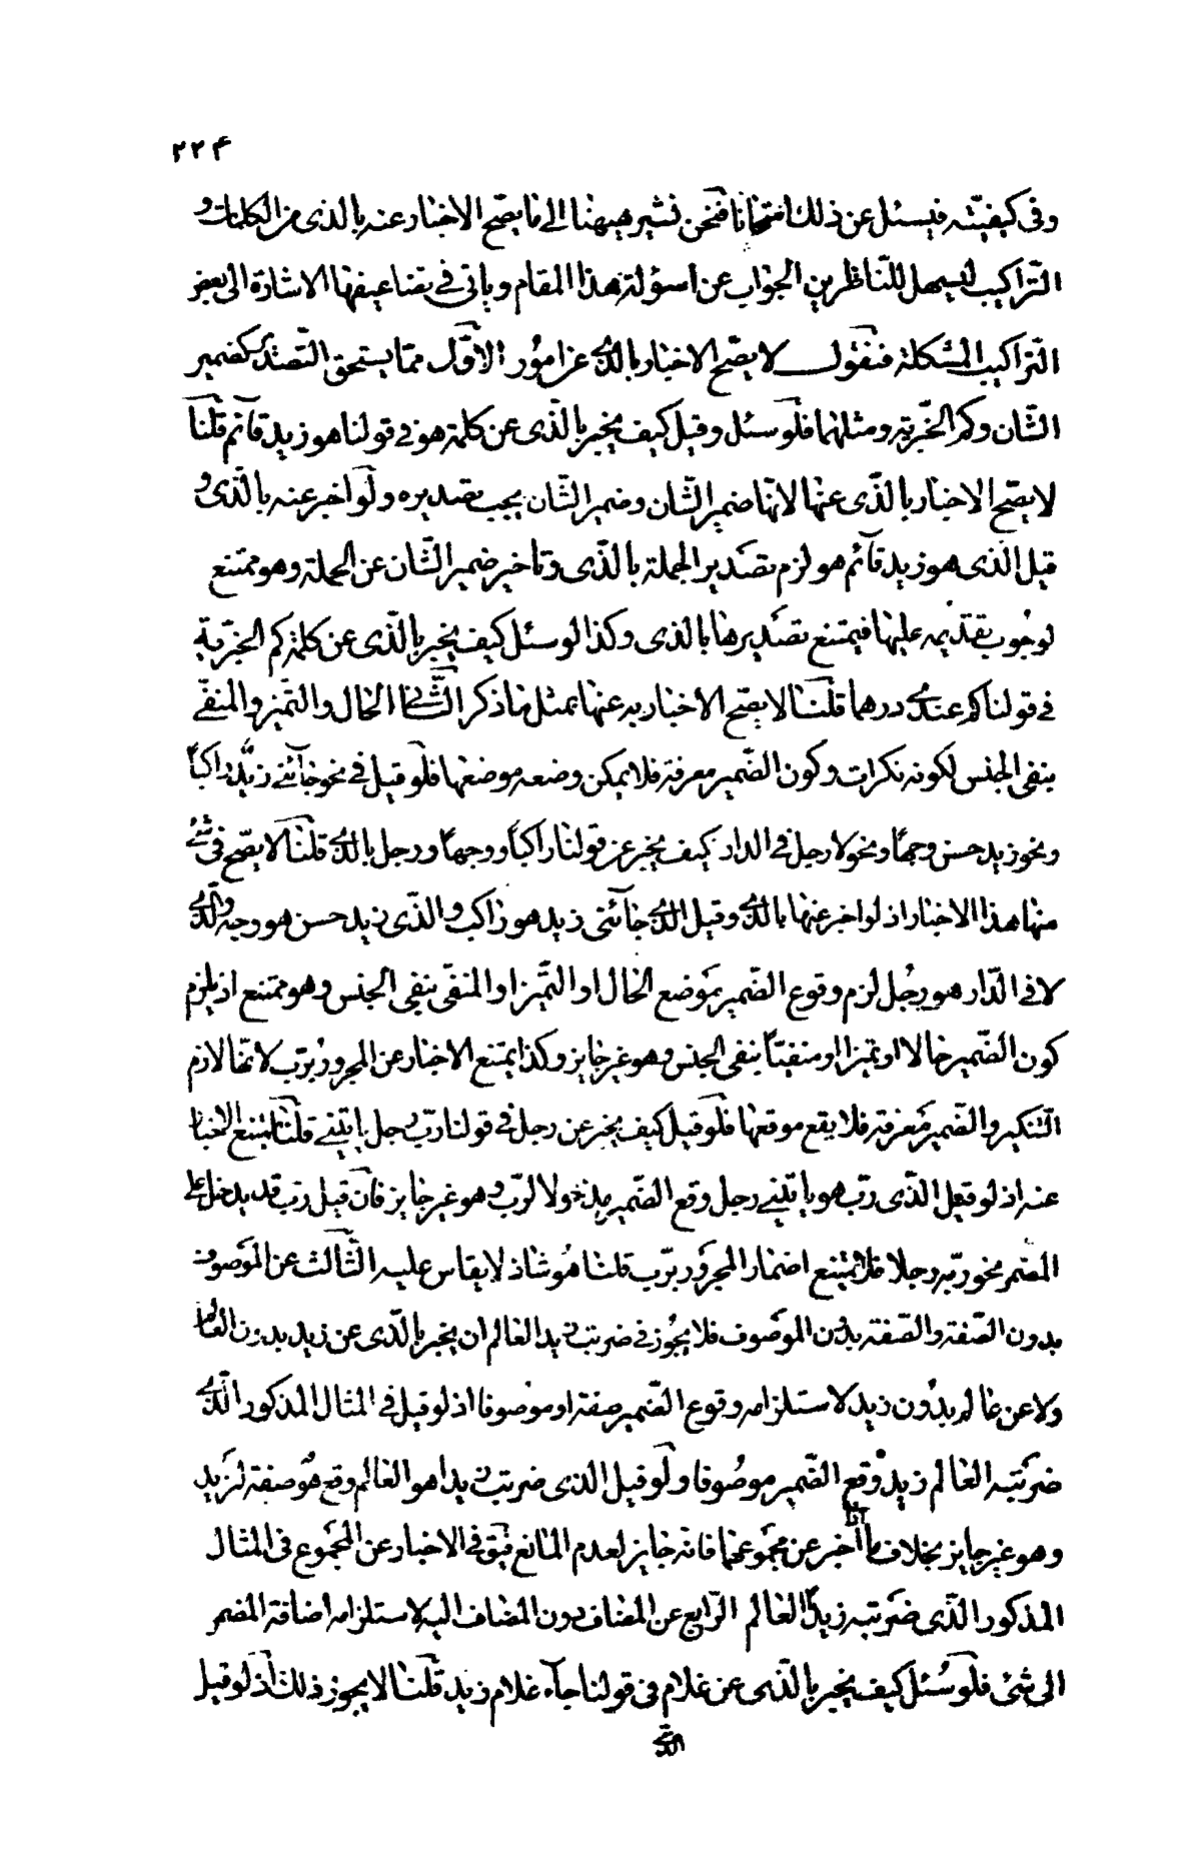 ٢٢۴
وفى كيفيّته فيسئل عن ذلك امتحانا فنحن نشير هيهنا الى ما يصّح الاخبار عنه بالذى من الكلمات و
التّراكيب ليسهل للنّاظرين الجواب عن اسؤلة هذا المقام و ياتى فى تضاعيفها الاشارة الى بعض
التّراكيب المشكلة فنقول لا يصّح الاخبار بالّذى عن امور الاوّل ممّا يستحق التّصدّر كضمير
الشّان وكم الخبريّة ومثلهما فلو سئل وقيل كيف يخبر بالّذى عن كلمة هو فى قولنا هو زيد قآئم قلنا
لا يصّح الاخبار بالّذى عنها لانّها ضمير الشّان وضمير الشّان يجب تصديره ولو اخبر عنه بالّذى و
قيل الذى هو زيد قآئم هو لزم تصدير الجملة بالّذى وتاخير ضمير الشّان عن الجملة وهو ممتنع
لوجوب تقديمه عليها فيمتنع تصديرها بالذى وكذا لو سئل كيف يخبر بالّذى عن كلمة كم الخبريّة
فى قولنا كم عندى درهما قلنا لا يصّح الاخبار به عنها بمثل ما ذكر الثّانى الحال والتميز والمنفى
بنفى الجنس لكونه نكرات وكون الضّمير معرفة فلا يمكن وضعه موضعها فلو قيل فى نحو جآئنى زيد راكباً
ونحو زيد حسن وجهاً ونحو لا رجل فى الدار كيف يخبر عن قولنا راكباً ووجهاً ورجل بالّذى قلنا لا يصّح فى شئ
منها هذا الاخبار اذ لو اخبر عنها بالّذى وقيل الّذى جآئنى زيد هو راكب والذّى زيد حسن هو وجه والّذى
لا فى الدّار هو رجل لزم وقوع الضّمير بموضع الحال او التّميز او المنفى بنفى الجنس وهو ممتنع اذ يلزم
كون الضّمير حالا او تميزا او منفيّاً بنفى الجنس وهو غير جايز وكذا يمتنع الاخبار عن المجرور بربّ لانّها لازم
التّنكير والضّمير معرفة فلا يقع موقعها فلو قيل كيف يخبر عن رجل فى قولنا ربّ رجل ياتينى قلنا يمتنع الاخبار
عنه اذ لو قيل الذّى ربّ هو ياتينى رجل وقع الضّمير مدخولا لربّ وهو غير جايز فان قيل ربّ قد يدخل على
المضمر نحو ربّه رجلا فلا يمتنع اضمار المجرور بربّ قلنا هو شاذ لا يقاس عليه الثّالث عن الموصوف
بدون الصّفة والصّفة بدون الموصوف فلا يجوز فى ضربت زيد العالم ان يخبر بالّذى عن زيد بدون العالم
ولا عن عالم بدون زيد لاستلزامه وقوع الضّمير صفة او موصوفا اذ لو قيل فى المثال المذكور الّذى
ضربته العالم زيد وقع الضّمير موصوفا ولو قيل الذى ضربت زيدا هو العالم وقع هو صفة لزيد
وهو غير جايز بخلاف ما اذا اخبر عن مجموعهما فانه جايز لعدم المانع فيق فى الاخبار عن المجموع فى المثال
المذكور الذّى ضربته زيدٌ العالم الرّابع عن المضاف دون المضاف اليه لاستلزامه اضافة المضمر
الى شئ فلو سئل كيف يخبر بالّذى عن غلام فى قولنا جآء غلام زيد قلنا لا يجوز ذلك اذ لو قيل
الّذى